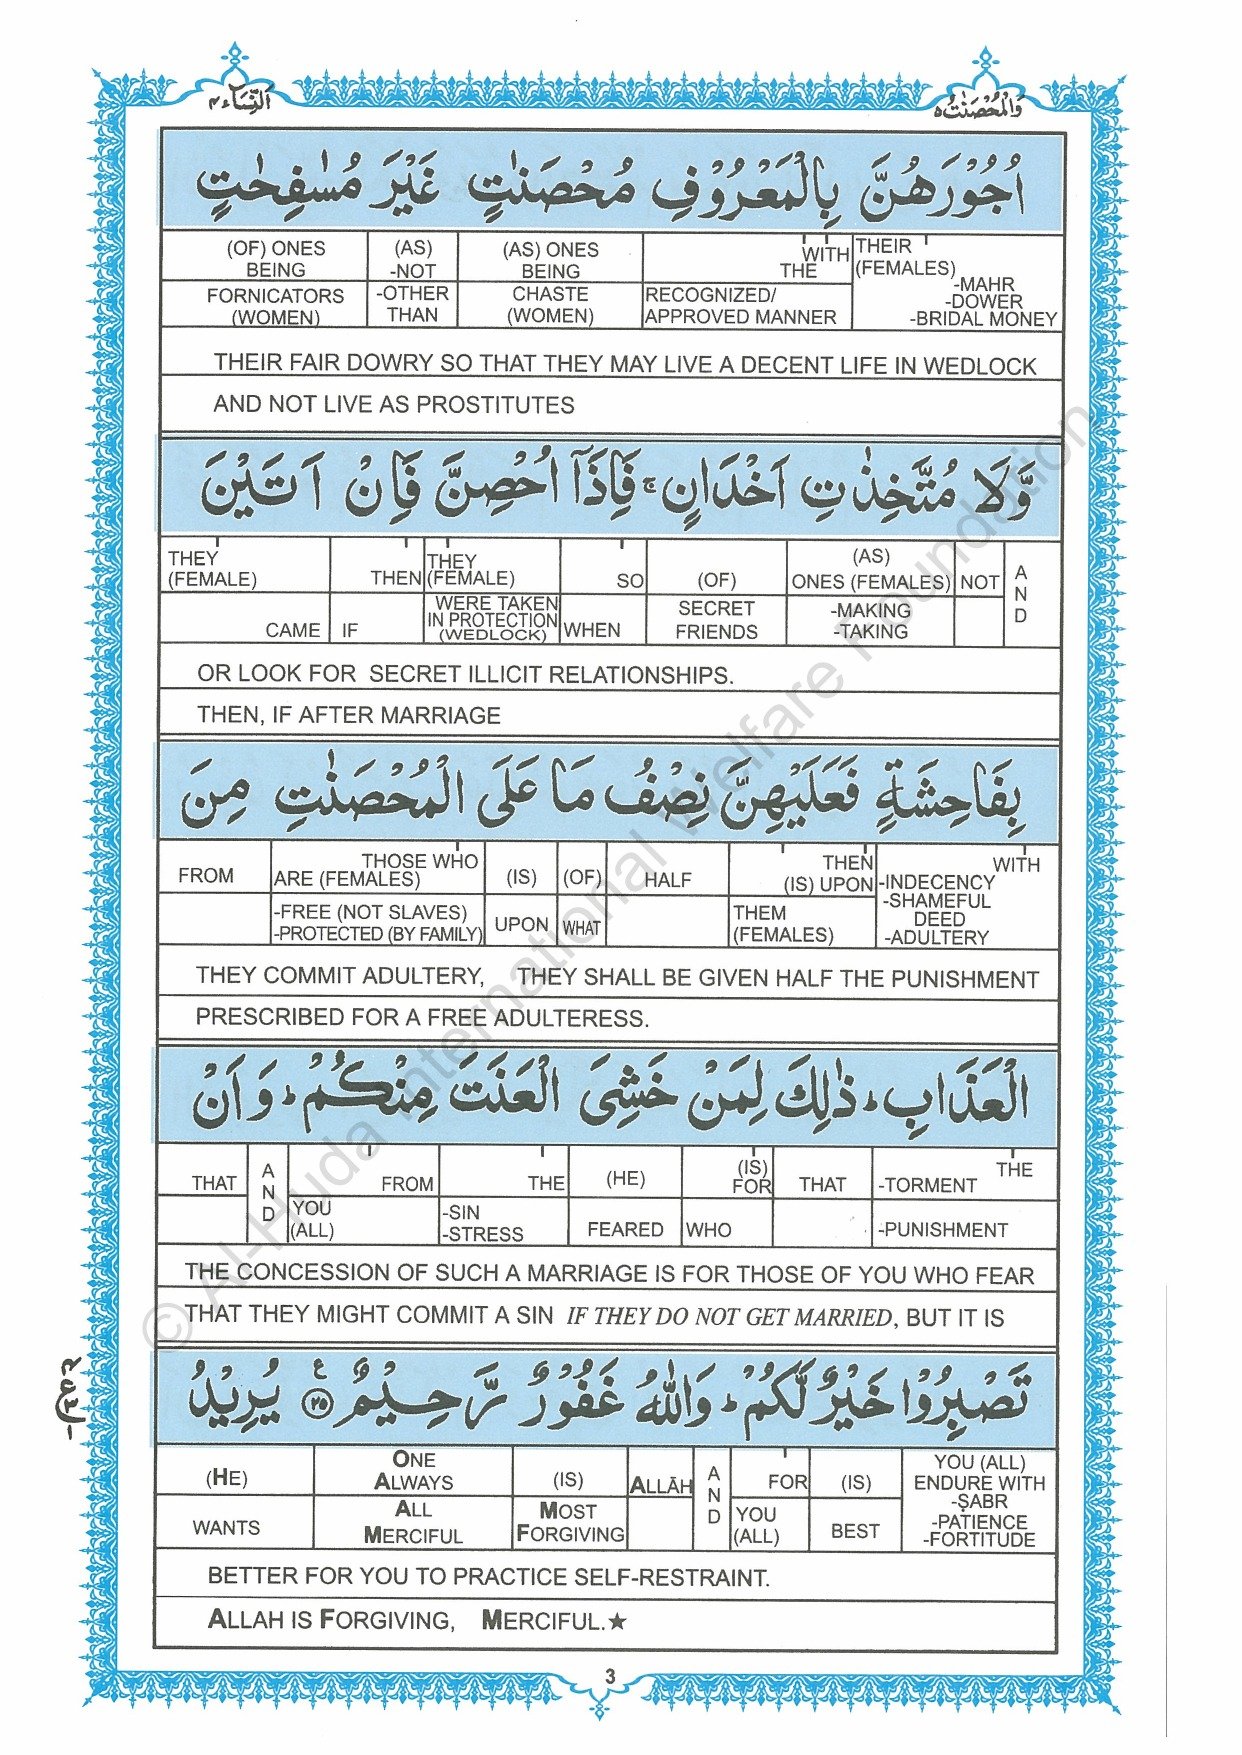 النِّسَآء ٤
وَالْمُحْصَنٰتُ ٥
اُجُوْرَهُنَّ بِالْمَعْرُوْفِ مُحْصَنٰتٍ غَيْرَ مُسٰفِحٰتٍ
(OF) ONES BEING (AS) -NOT (AS) ONES BEING WITH THE THEIR (FEMALES)
FORNICATORS (WOMEN) -OTHER THAN CHASTE (WOMEN) RECOGNIZED/ APPROVED MANNER -MAHR -DOWER -BRIDAL MONEY
THEIR FAIR DOWRY SO THAT THEY MAY LIVE A DECENT LIFE IN WEDLOCK
AND NOT LIVE AS PROSTITUTES
وَّلَا مُتَّخِذٰتِ اَخْدَانٍ ۚ فَاِذَآ اُحْصِنَّ فَاِنْ اَتَيْنَ
THEY (FEMALE) THEN THEY (FEMALE) SO (OF) (AS) ONES (FEMALES) NOT AND
CAME IF WERE TAKEN IN PROTECTION (WEDLOCK) WHEN SECRET FRIENDS -MAKING -TAKING
OR LOOK FOR SECRET ILLICIT RELATIONSHIPS.
THEN, IF AFTER MARRIAGE
بِفَاحِشَةٍ فَعَلَيْهِنَّ نِصْفُ مَا عَلَى الْمُحْصَنٰتِ مِنَ
FROM THOSE WHO ARE (FEMALES) (IS) (OF) HALF THEN (IS) UPON WITH
-FREE (NOT SLAVES) -PROTECTED (BY FAMILY) UPON WHAT THEM (FEMALES) -INDECENCY -SHAMEFUL DEED -ADULTERY
THEY COMMIT ADULTERY, THEY SHALL BE GIVEN HALF THE PUNISHMENT
PRESCRIBED FOR A FREE ADULTERESS.
الْعَذَابِ ؕ ذٰلِكَ لِمَنْ خَشِىَ الْعَنَتَ مِنْكُمْ ؕ وَاَنْ
THAT AND FROM THE (HE) (IS) FOR THAT THE -TORMENT
YOU (ALL) -SIN -STRESS FEARED WHO -PUNISHMENT
THE CONCESSION OF SUCH A MARRIAGE IS FOR THOSE OF YOU WHO FEAR
THAT THEY MIGHT COMMIT A SIN IF THEY DO NOT GET MARRIED, BUT IT IS
تَصْبِرُوْا خَيْرٌ لَّكُمْ ؕ وَاللّٰهُ غَفُوْرٌ رَّحِيْمٌ ٢٥ ع يُرِيْدُ
(HE) ONE ALWAYS (IS) ALLĀH AND FOR (IS) YOU (ALL) ENDURE WITH
WANTS ALL MERCIFUL MOST FORGIVING YOU (ALL) BEST -ṢABR -PATIENCE -FORTITUDE
BETTER FOR YOU TO PRACTICE SELF-RESTRAINT.
ALLAH IS FORGIVING, MERCIFUL.★
3
© Al-Huda International Welfare Foundation